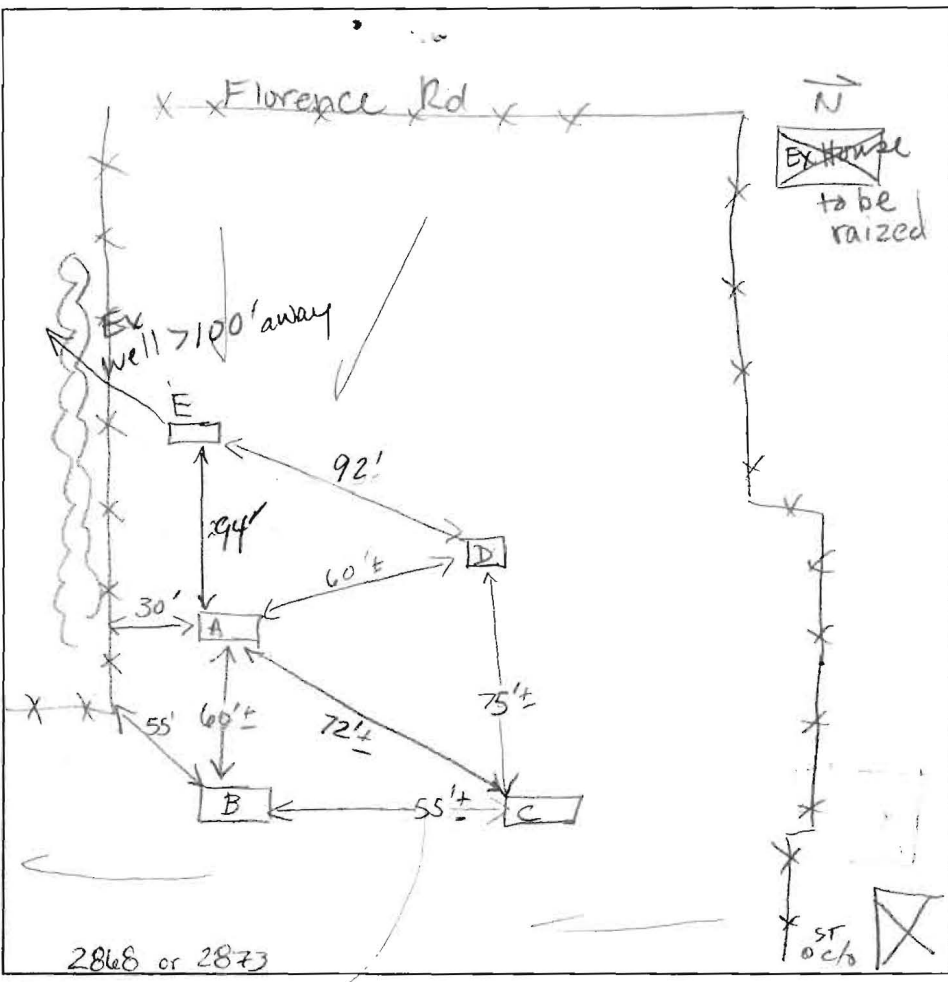 Florence Rd
N
Ex House
to be
raized
Ex
well >100' away
E
92'
94'
D
60'±
30'
A
75'±
55'
60'±
72'±
B
55'±
C
2868 or 2873
ST
o c/o